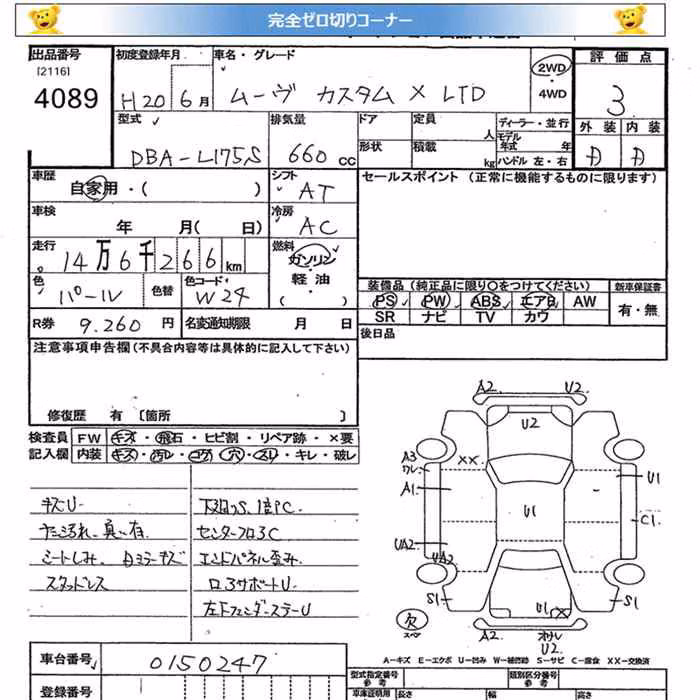 完全ゼロ切りコーナー
出品番号 初度登録年月 車名・グレード 評価点
[2116]
4089 H20 6月 ムーヴ カスタム X LTD 2WD・4WD 3
型式 排気量 ドア 定員 人 ディーラー・並行 外装 内装
DBA-L175S 660 CC 形状 積載 kg モデル年式 年 ハンドル 左・右
車歴 シフト セールスポイント (正常に機能するものに限ります)
自家用・( ) AT
車検 年 月( 日) 冷房 AC
走行 14万6千266km 燃料 ガソリン・軽油・( )
色 パール 色替 色コード W24
装備品 (純正品に限り〇をつけてください) 新車保証書
PS PW ABS エアB AW 有・無
SR ナビ TV カウ
R券 9.260円 名変通知期限 月 日
後日品
注意事項申告欄 (不具合内容等は具体的に記入して下さい)
修復歴 有 [箇所 ]
検査員記入欄 FW キズ・飛石・ヒビ割・リペア跡・×要
内装 キズ・汚レ・コゲ・穴・スリ・キレ・破レ
キズU
シートしみ、
スタッドレス
センターフロ3C
エンドパネル歪み
ロ3サポートU
左下フェンダーステーU
A2 U2
U2
A3
ワレ
XX
A1
U1
U1
C1
UA2
UA2
S1
U1
X
S1
欠
スペア
A2
U2
A-キズ E-エクボ U-凹み W-補修跡 S-サビ C-腐食 XX-交換済
車台番号 0150247
登録番号
型式指定番号 参考 類別区分番号 参考
車庫証明用 長さ 幅 高さ